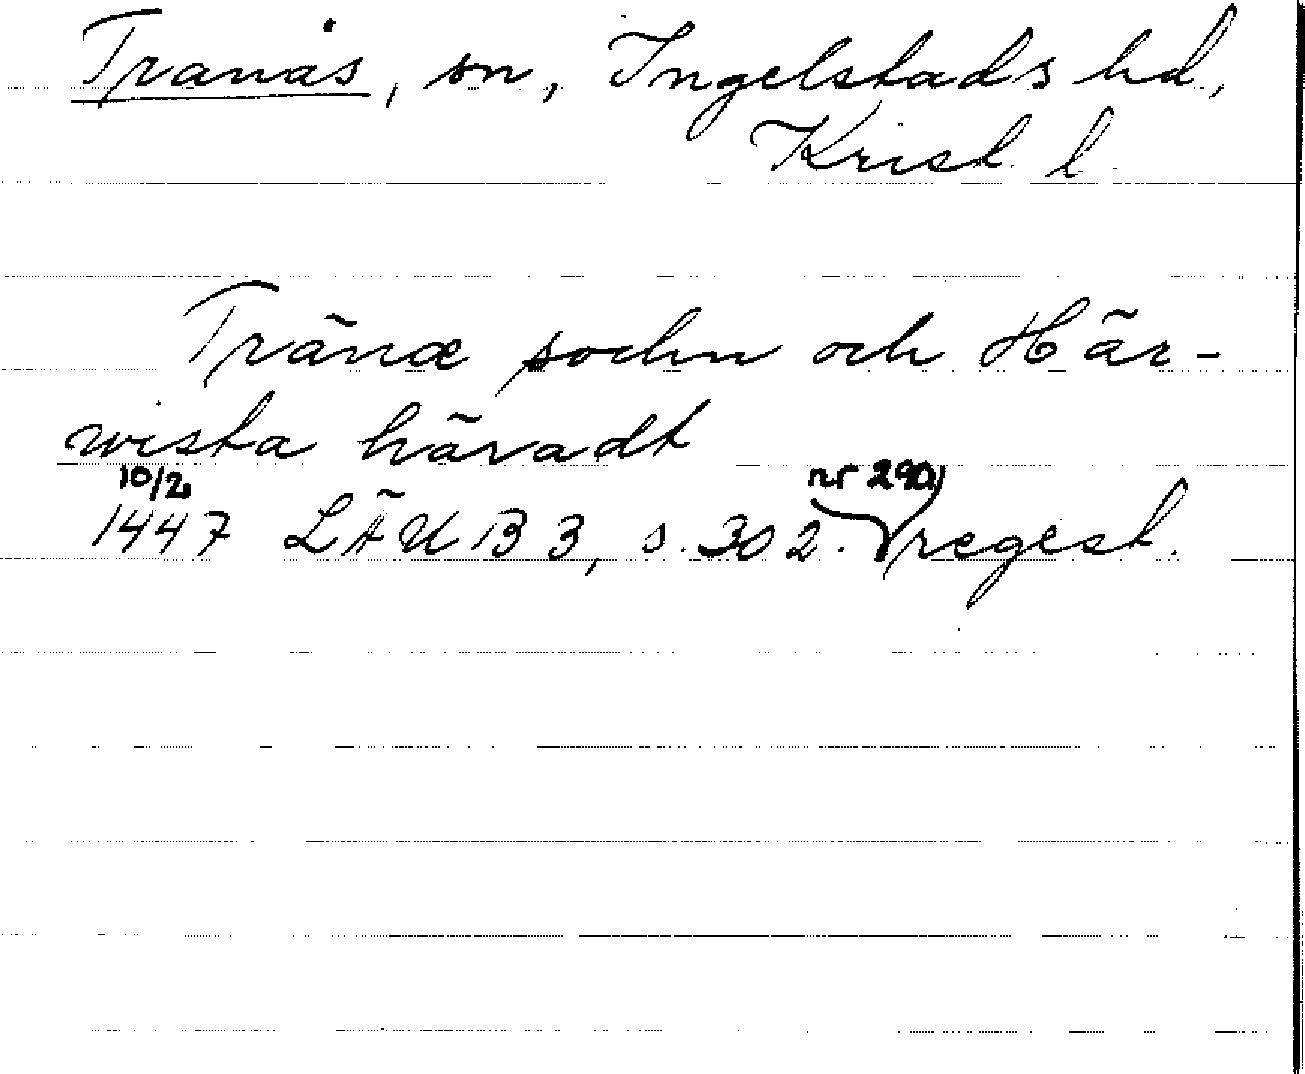 Tranås, sn, Ingelstads hd,
Krist. l.
Tränæ sochn och Här-
wista häradt
10/2
1447 LÄUB 3, s. 302. nr 290, regest.